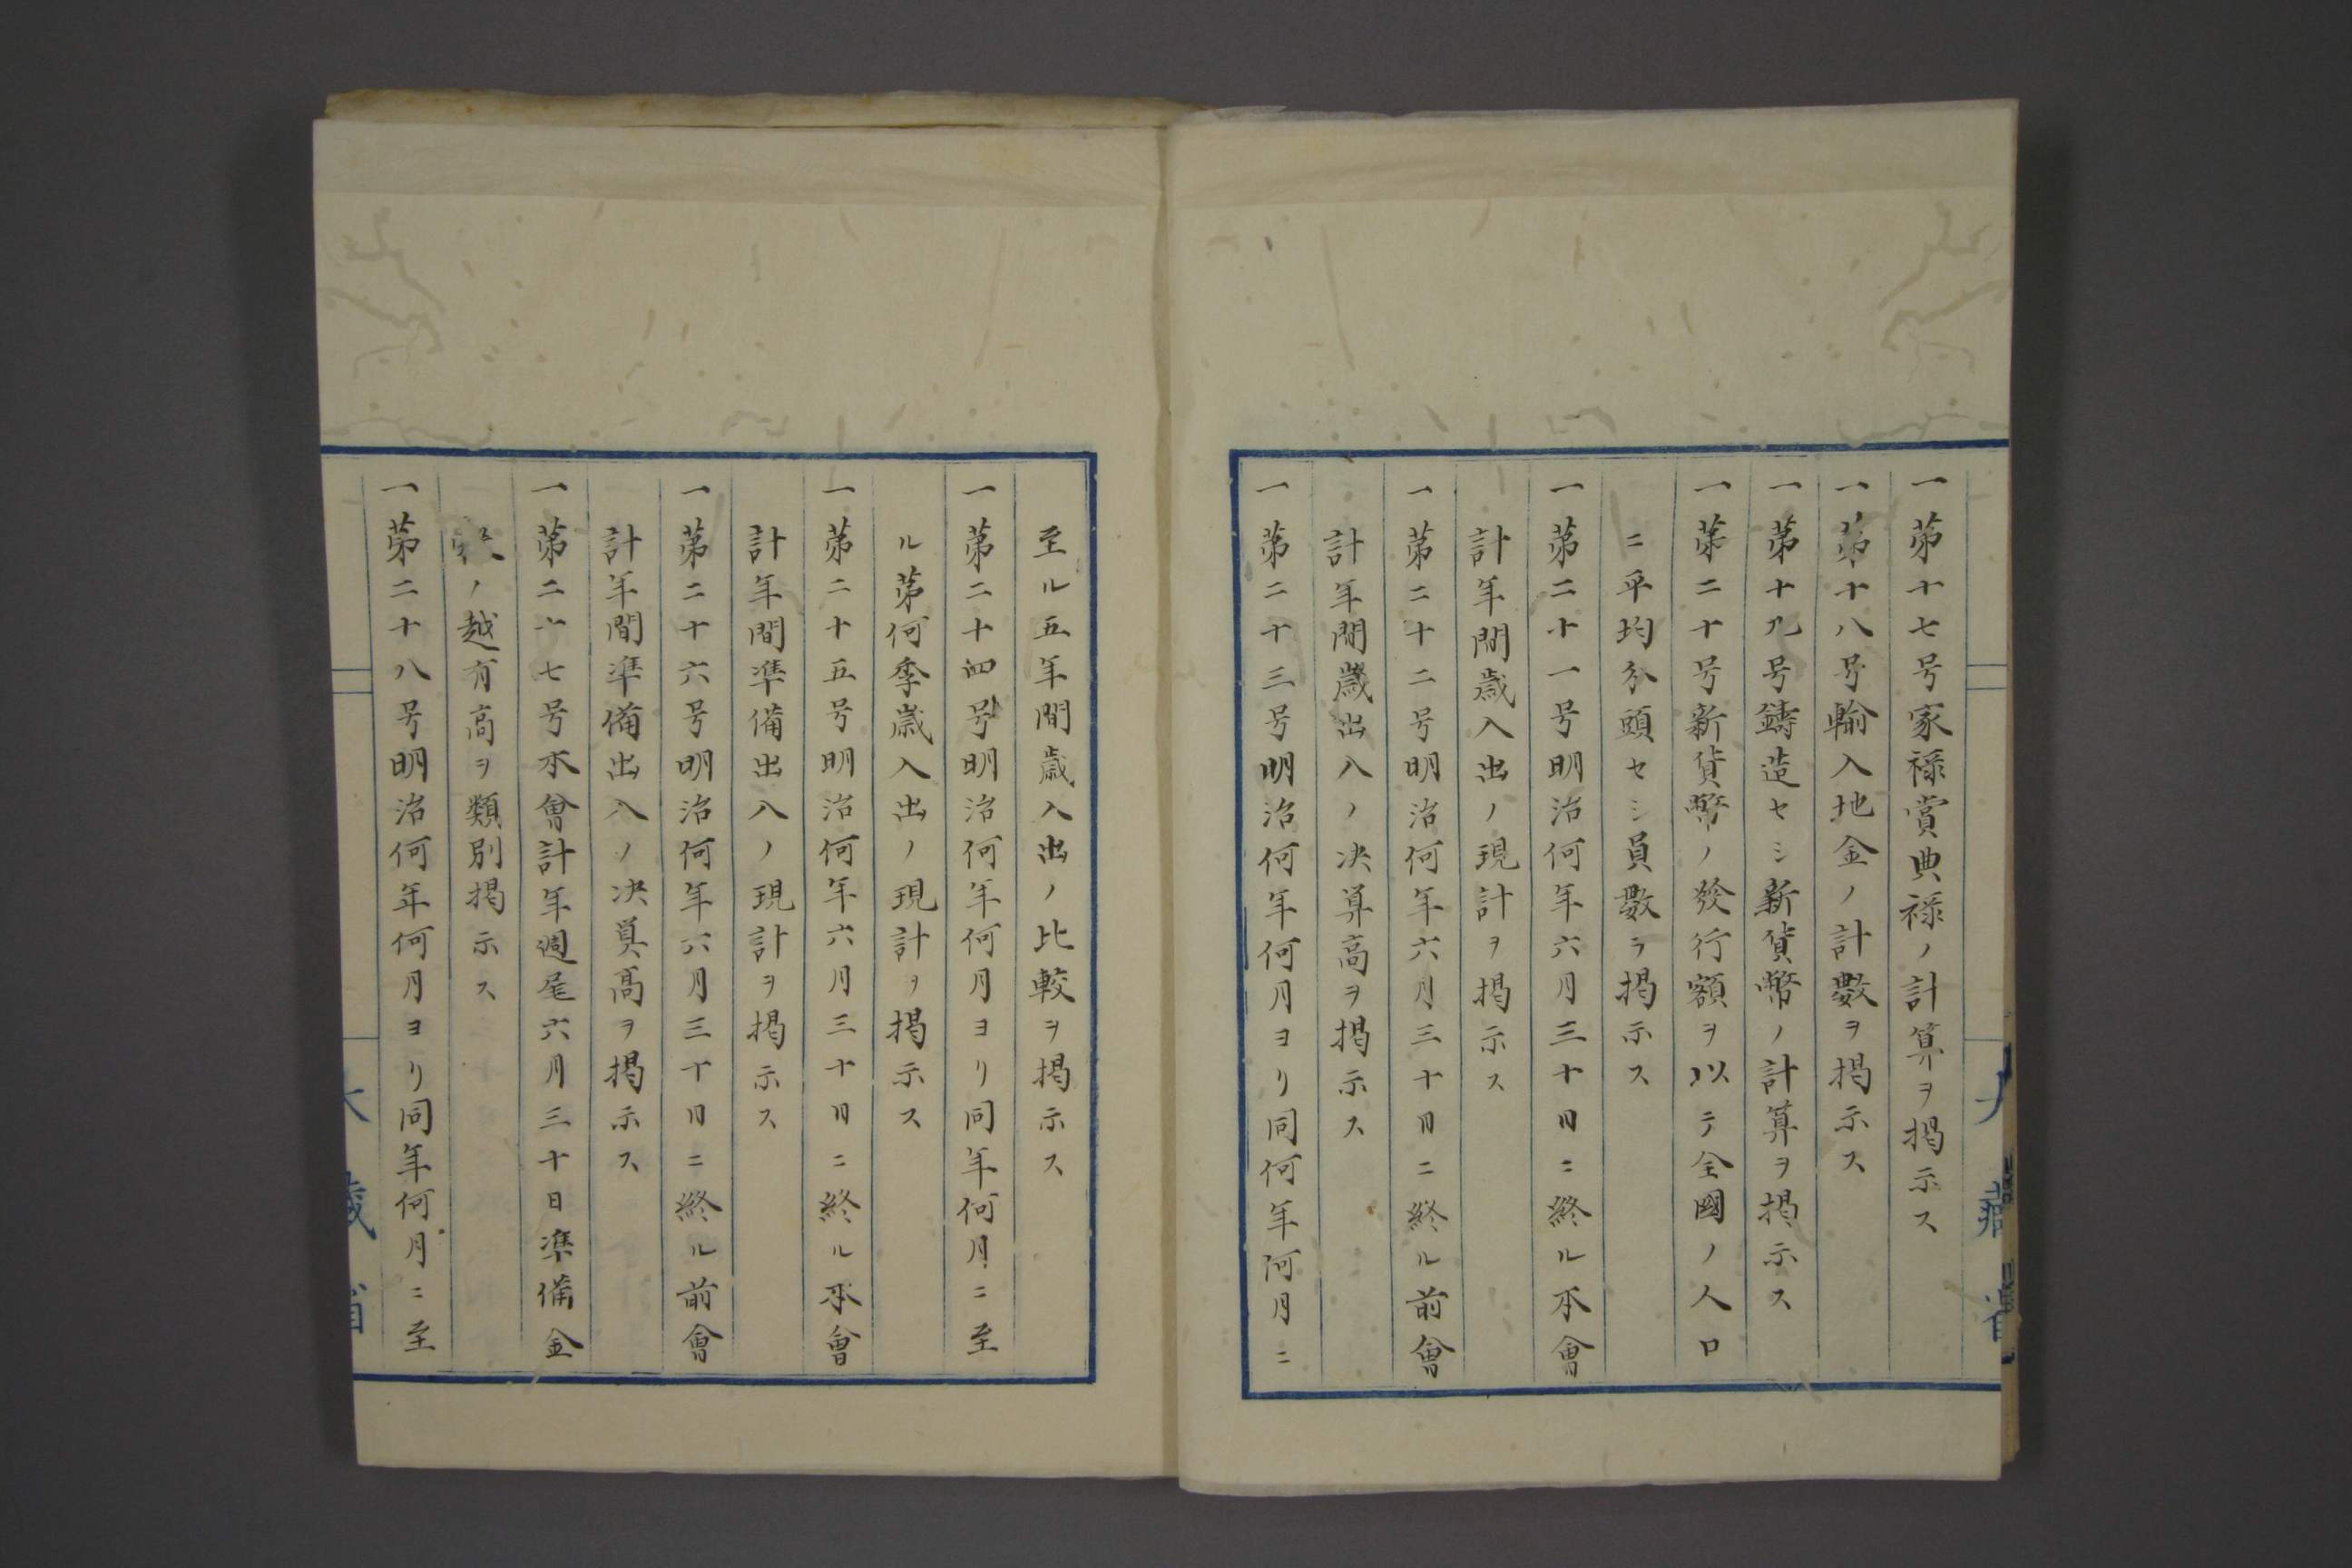 一第十七号家禄賞典禄ノ計算ヲ掲示ス
一第十八号輸入地金ノ計數ヲ掲示ス
一第十九号鑄造セシ新貨幣ノ計算ヲ掲示ス
一第二十号新貨幣ノ發行額ヲ以テ全國ノ人口
ニ平均分頭セシ員數ヲ掲示ス
一第二十一号明治何年六月三十日ニ終ル本會
計年間歳入出ノ現計ヲ掲示ス
一第二十二号明治何年六月三十日ニ終ル前會
計年間歳出入ノ决算高ヲ掲示ス
一第二十三号明治何年何月ヨリ同何年何月ニ
至ル五年間歳入出ノ比較ヲ掲示ス
一第二十四号明治何年何月ヨリ同年何月ニ至
ル第何季歳入出ノ現計ヲ掲示ス
一第二十五号明治何年六月三十日ニ終ル本會
計年間準備出入ノ現計ヲ掲示ス
一第二十六号明治何年六月三十日ニ終ル前會
計年間準備出入ノ决算高ヲ掲示ス
一第二十七号本會計年週尾六月三十日準備金
ノ越有高ヲ類別掲示ス
一第二十八号明治何年何月ヨリ同年何月ニ至
大藏省